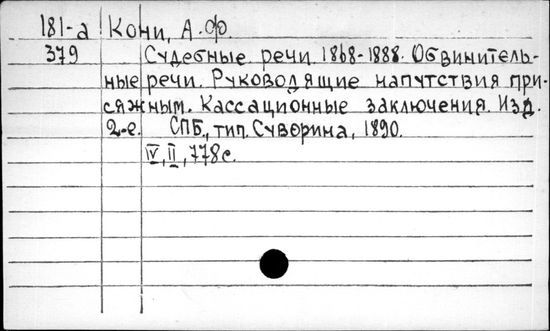 181-а Кони, А.Ф.
379 Судебные речи. 1868-1888. Обвинитель-
ные речи. Руководящие напутствия при-
сяжным. Кассационные заключения. Изд.
2-е. СПБ., тип. Суворина, 1890.
IV, II, 778 с.